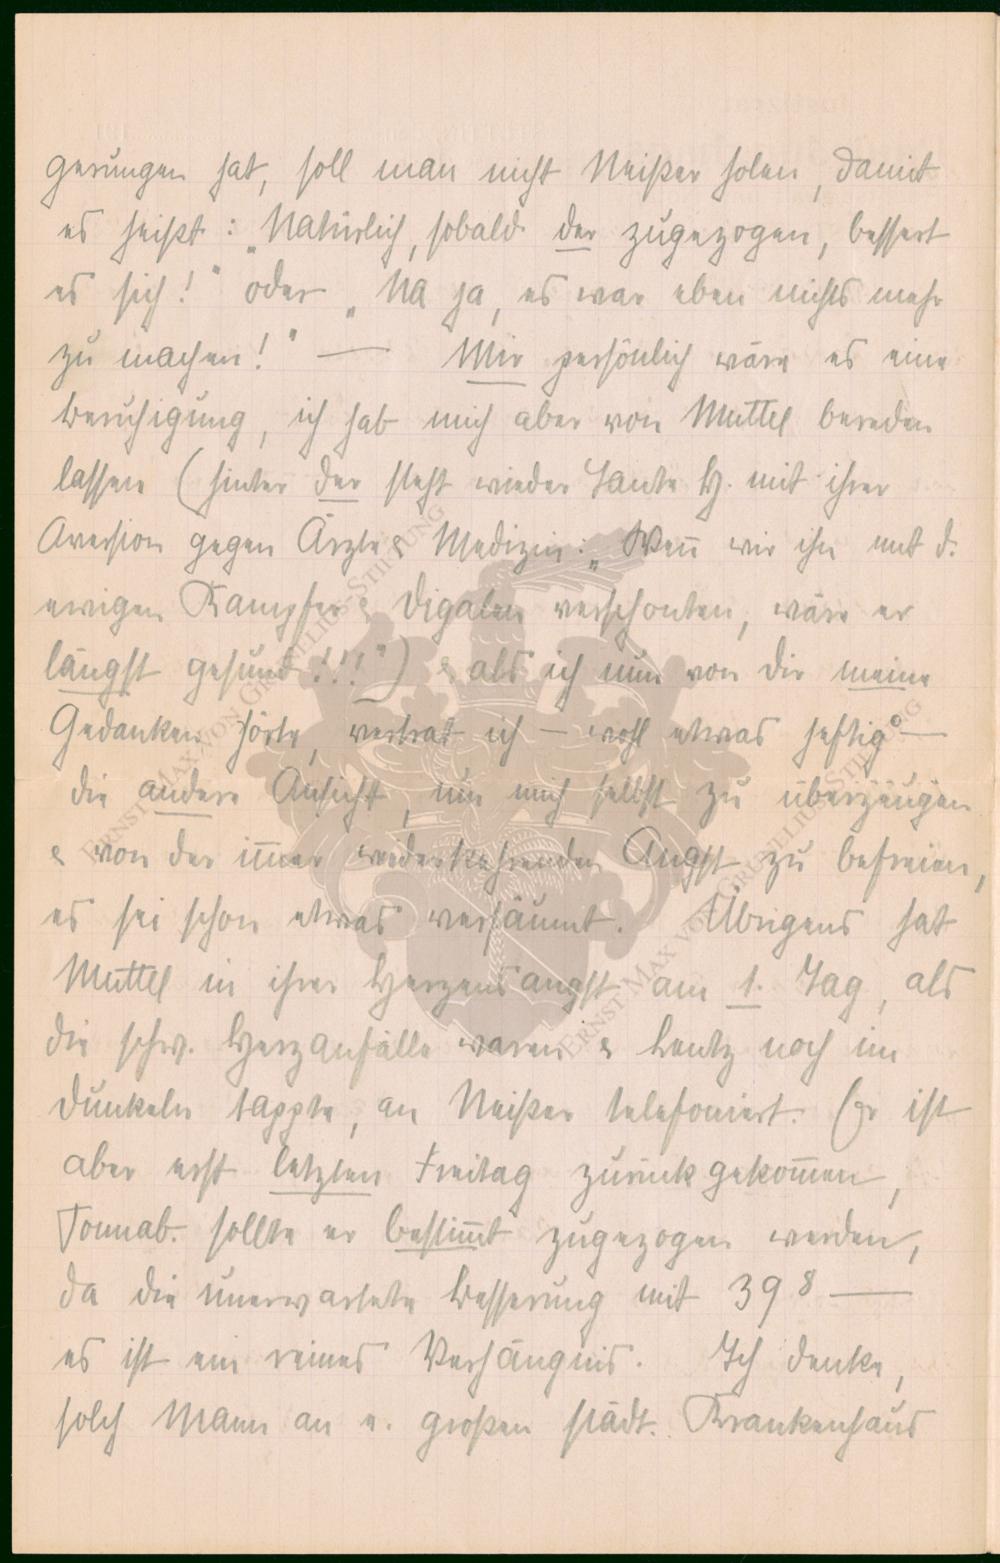 gerungen hat, soll man nicht Neißer holen, damit
es heißt: „Natürlich, sobald der zugezogen, bessert
es sich!" oder „Na ja, es war eben nichts mehr
zu machen!" — Mir persönlich wäre es eine
Beruhigung, ich hab mich aber von Muttel bereden
lassen (hinter der steht wieder Tante H. mit ihrer
Aversion gegen Ärzte & Medizin: „Weñ wir ihn mit d.
ewigen Kampfer & Digalen verschonten, wäre er
längst gesund!!!") & als ich nun von Dir meine
Gedanken hörte, vertrat ich – wohl etwas heftig –
die andere Ansicht, um mich selbst zu überzeugen
& von der im̃er wiederkehrenden Angst zu befreien,
es sei schon etwas versäumt. Übrigens hat
Muttel in ihrer Herzensangst am 1. Tag, als
die schw. Herzanfälle waren & Lentz noch im
Dunkeln tappte, an Neißer telefoniert. Er ist
aber erst letzten Freitag zurückgekom̃en,
Sonnab. sollte er bestim̃t zugezogen werden,
da die unerwartete Besserung mit 39 8 —
es ist ein reines Verhängnis. Ich denke,
solch Mann an e. großen städt. Krankenhaus
ERNST MAX VON GRUNELIUS-STIFTUNG
ERNST MAX VON GRUNELIUS-STIFTUNG